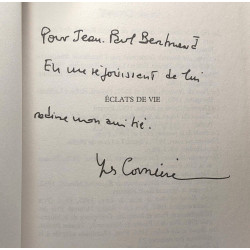 Pour Jean-Paul Bertrand
En me réjouissant de lui
ÉCLATS DE VIE
redire mon amitié.
Yves